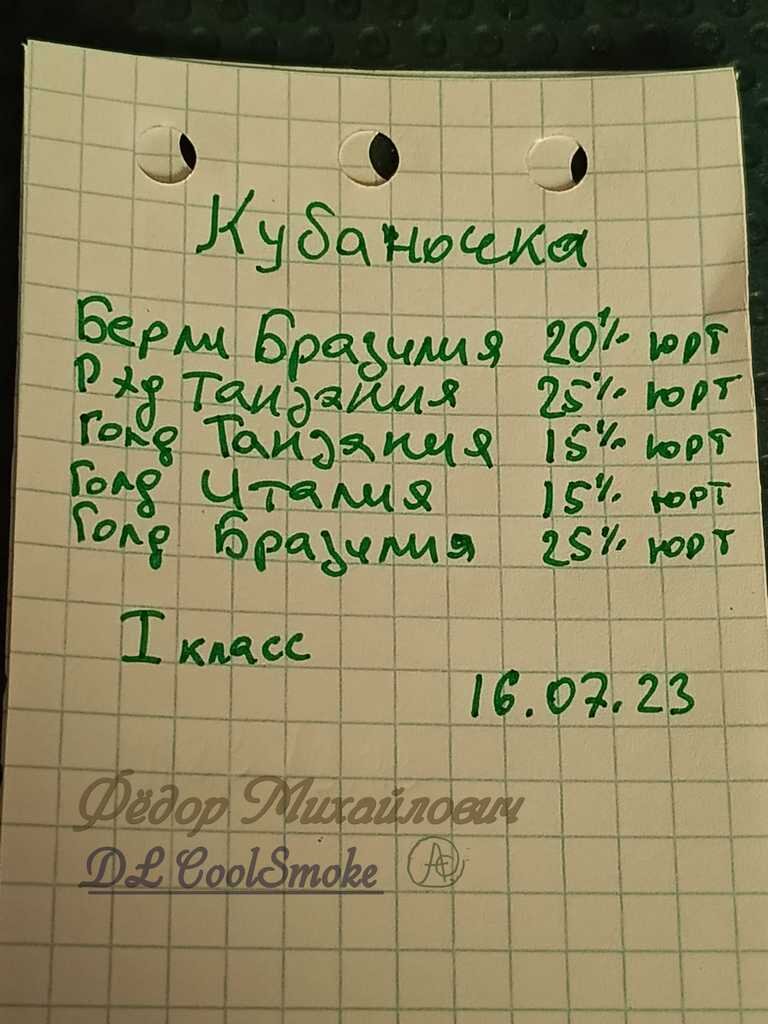 Кубаночка
Берли Бразилия 20% юрт
Рхд Танзания 25% юрт
Голд Танзания 15% юрт
Голд Италия 15% юрт
Голд Бразилия 25% юрт
I класс
16.07.23
Фёдор Михайлович
DL CoolSmoke